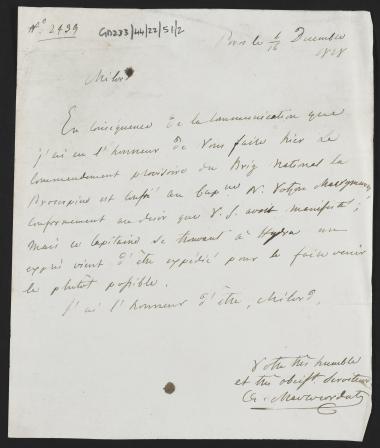 N° 2499
GD233/44/22/51/2
Poros le 4/16 Decembre
1828
Milord
En consequence de la Communication que
j'ai eu l'honneur de Vous faire hier Le
Commendement provisoire du Brig National la
est confié au Cap ne N. Votzon
Conformement au desir que V. S. avait manifesté;
Mais ce Capitaine se trouvant à Hydra un
exprés vient d'être expedié pour le faire venir
le plutôt possible.
J'ai l'honneur d'être, Milord,
Votre très humble
et très obeisst serviteur
A. Mavrocordato